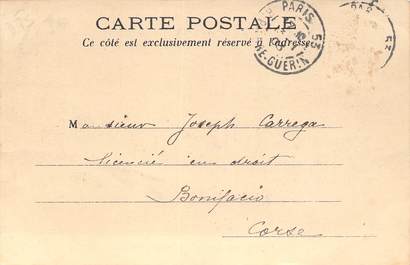 CARTE POSTALE
Ce côté est exclusivement réservé à l'adresse
PARIS 53
PARIS
53
Monsieur Joseph Carrega
licencié en droit
Bonifacio
Corse